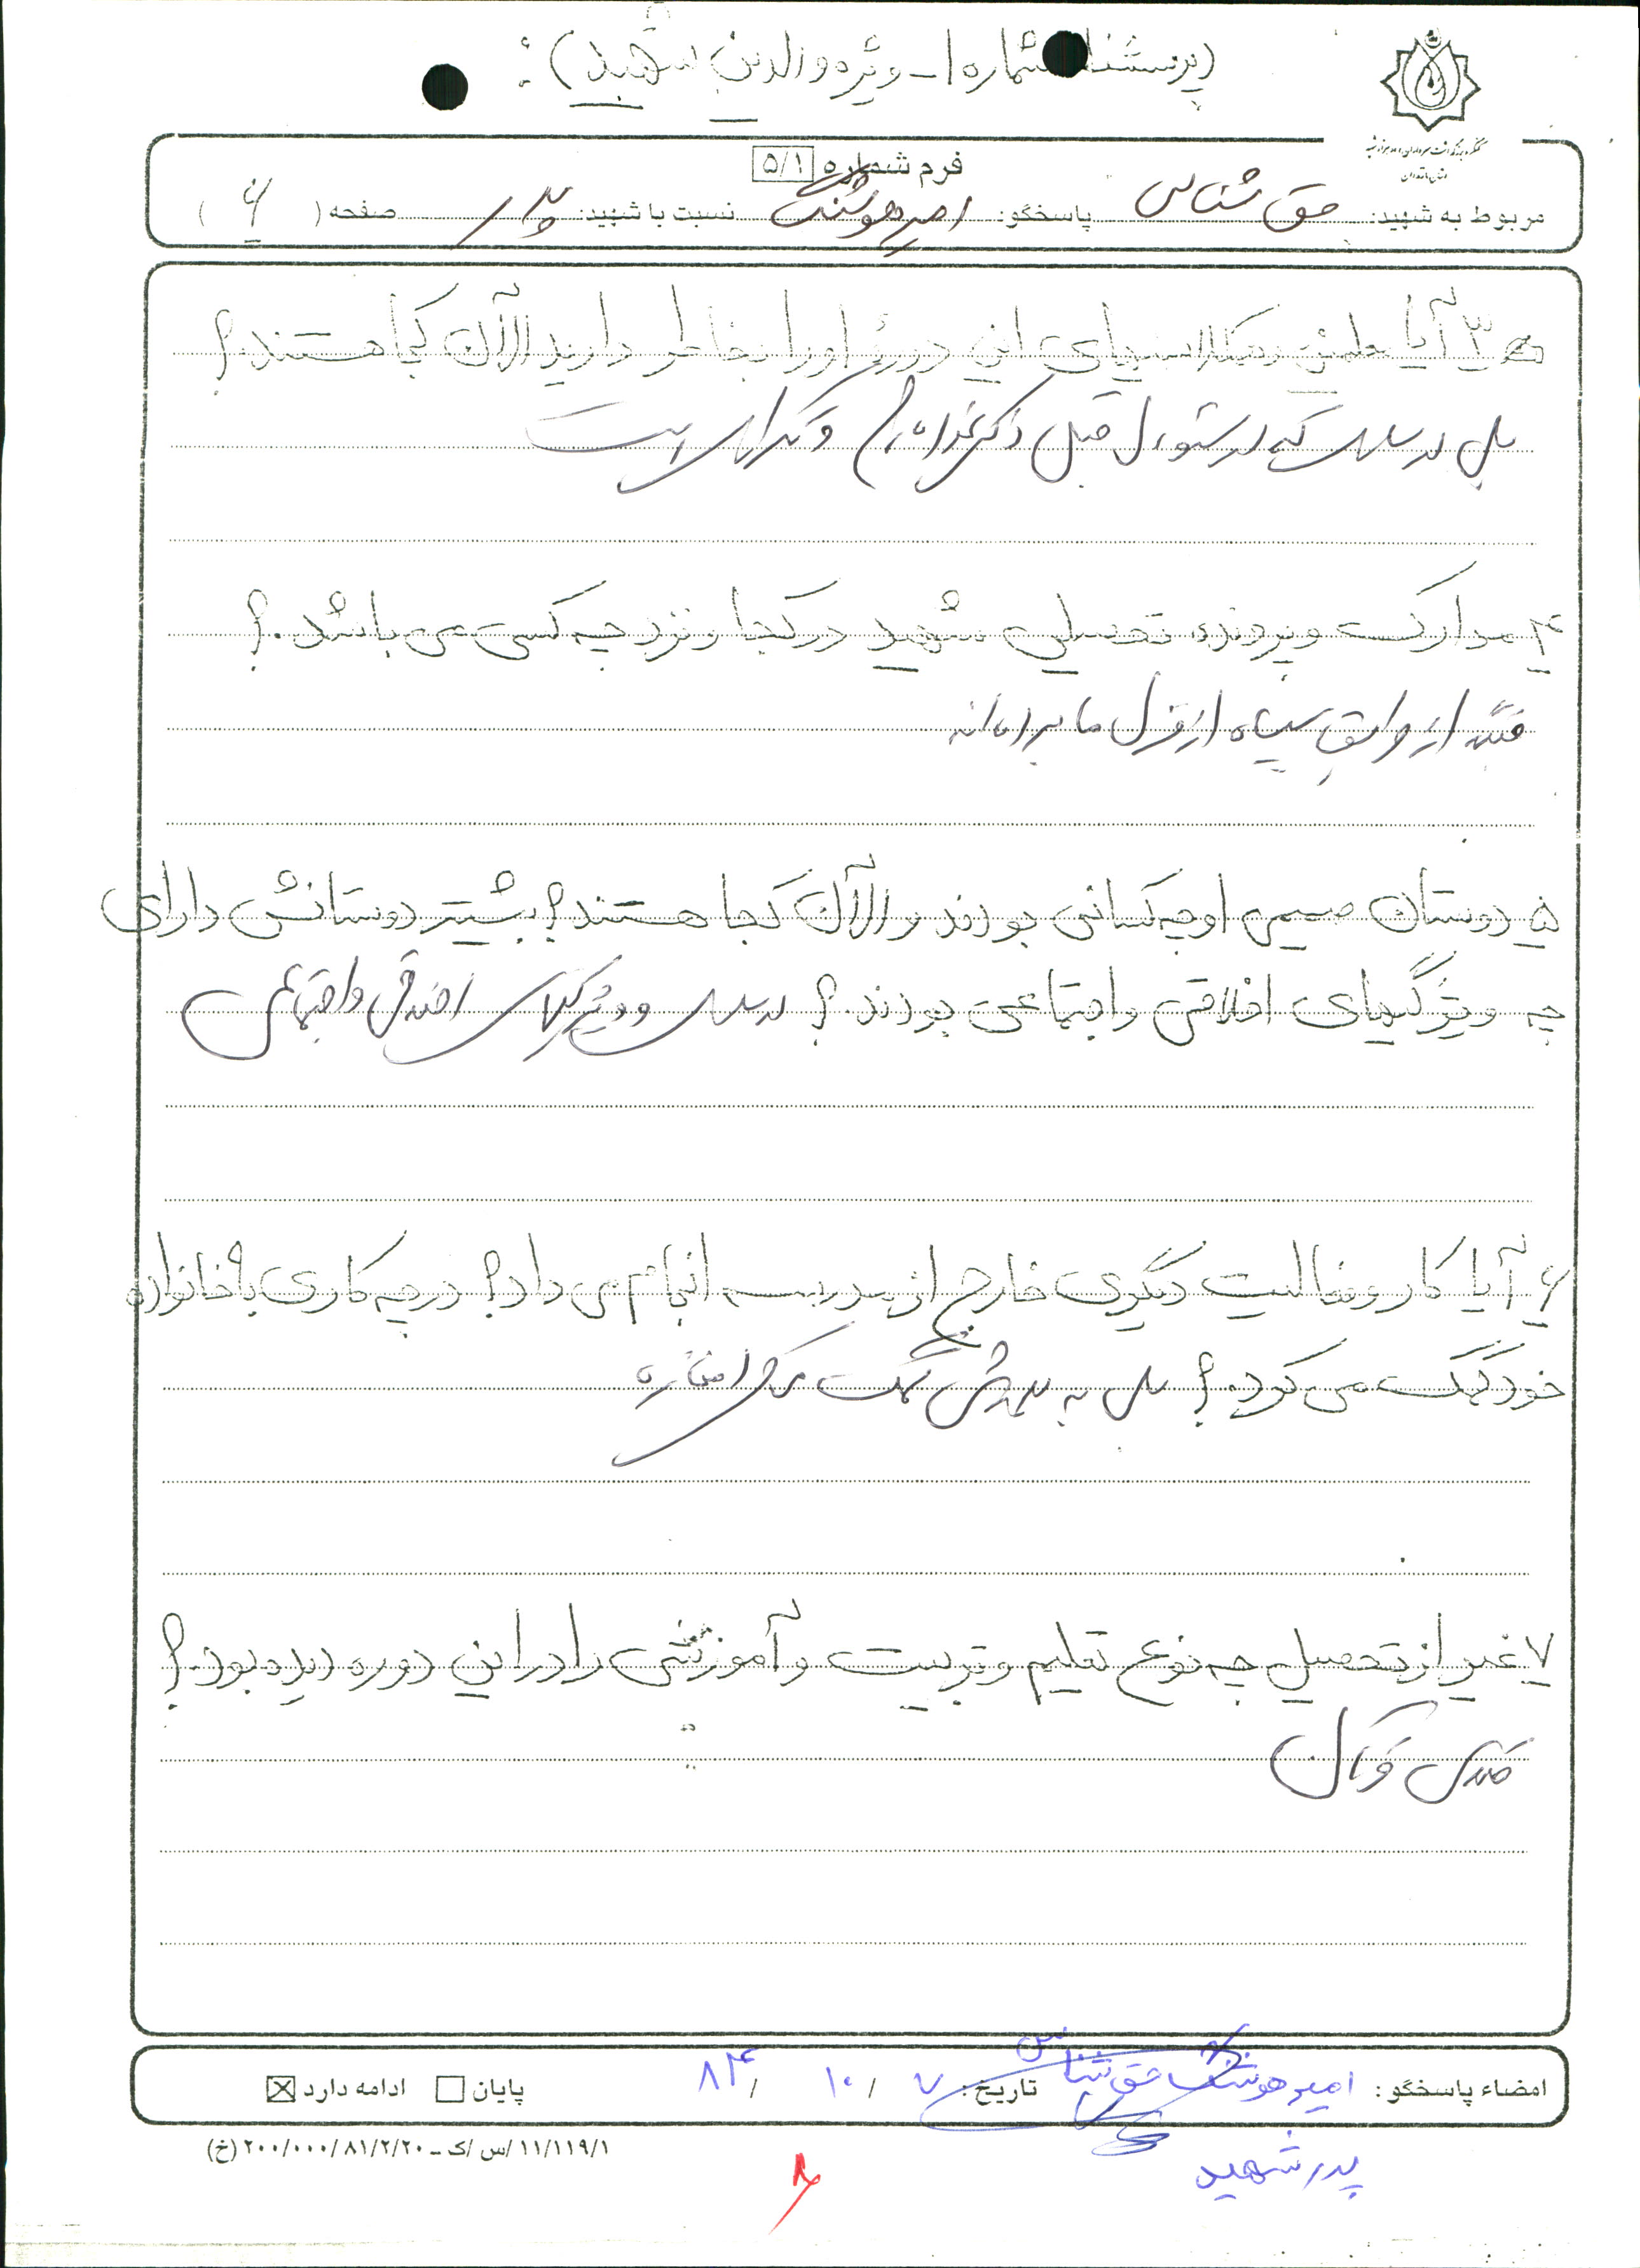 (پرسشنا شماره ۱ - ویژه والدین شهید):
فرم شماره ۵/۱
مربوط به شهید: حق شناس پاسخگو: امیرهوشنگ نسبت با شهید: پدر صفحه ( ۶ )
۳ آیا معلمین و همکلاسیهای این دورهٔ او را بخاطر دارید الآن کجا هستند؟
بلی در سئوال قبل
۴ مدارک و پرونده تحصیلی شهید در کجا و نزد چه کسی می باشد.؟
سپاه از منزل ما برده اند
۵ دوستان صمیمی او چه کسانی بودند و الآن کجا هستند؟ بیشتر دوستانش دارای
چه ویژگیهای اخلاقی و اجتماعی بودند.؟ و ویژگیهای اخلاقی و اجتماعی
۶ آیا کار و فعالیت دیگری خارج از مدرسه انجام می داد؟ در چه کاری با خانواده
خود کمک می کرد.؟ بلی به پدرش کمک می کرد مغازه
۷ غیر از تحصیل چه نوع تعلیم و تربیت و آموزشی را در این دوره دیده بود.؟
امضاء پاسخگو: امیرهوشنگ حق شناس تاریخ: ۷ / ۱۰ / ۸۴ پایان ☐ ادامه دارد ☒
پدر شهید
۱۱/۱۱۹/۱ /س /ک - ۲۰۰/۰۰۰/۸۱/۲/۲۰ (خ)
۸